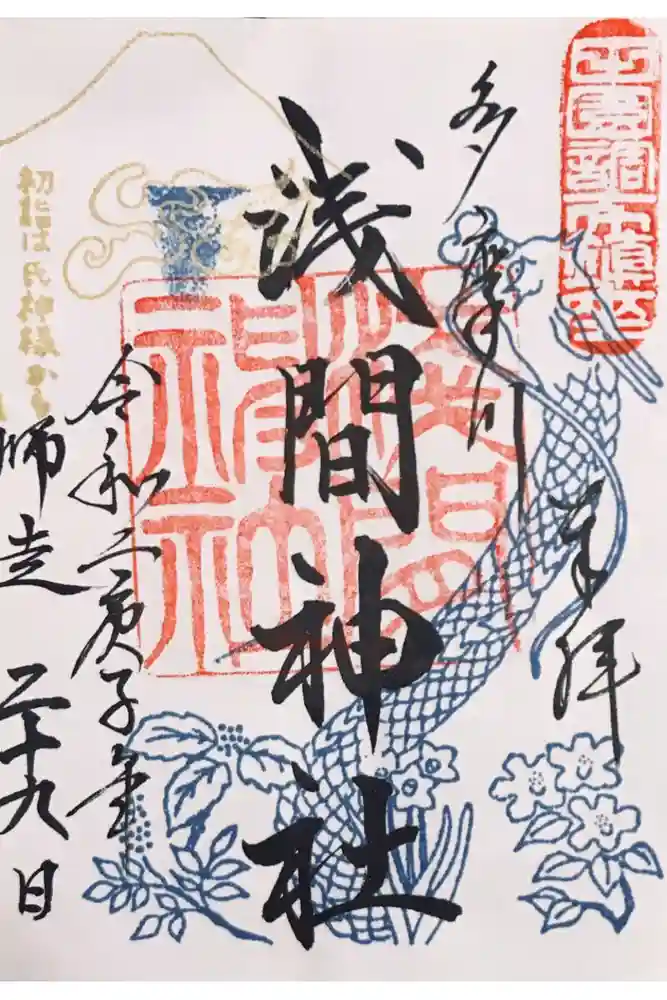 多摩川
浅間神社
奉拝
令和二庚子年
師走 二十九日
初詣は氏神様から
浅間神社